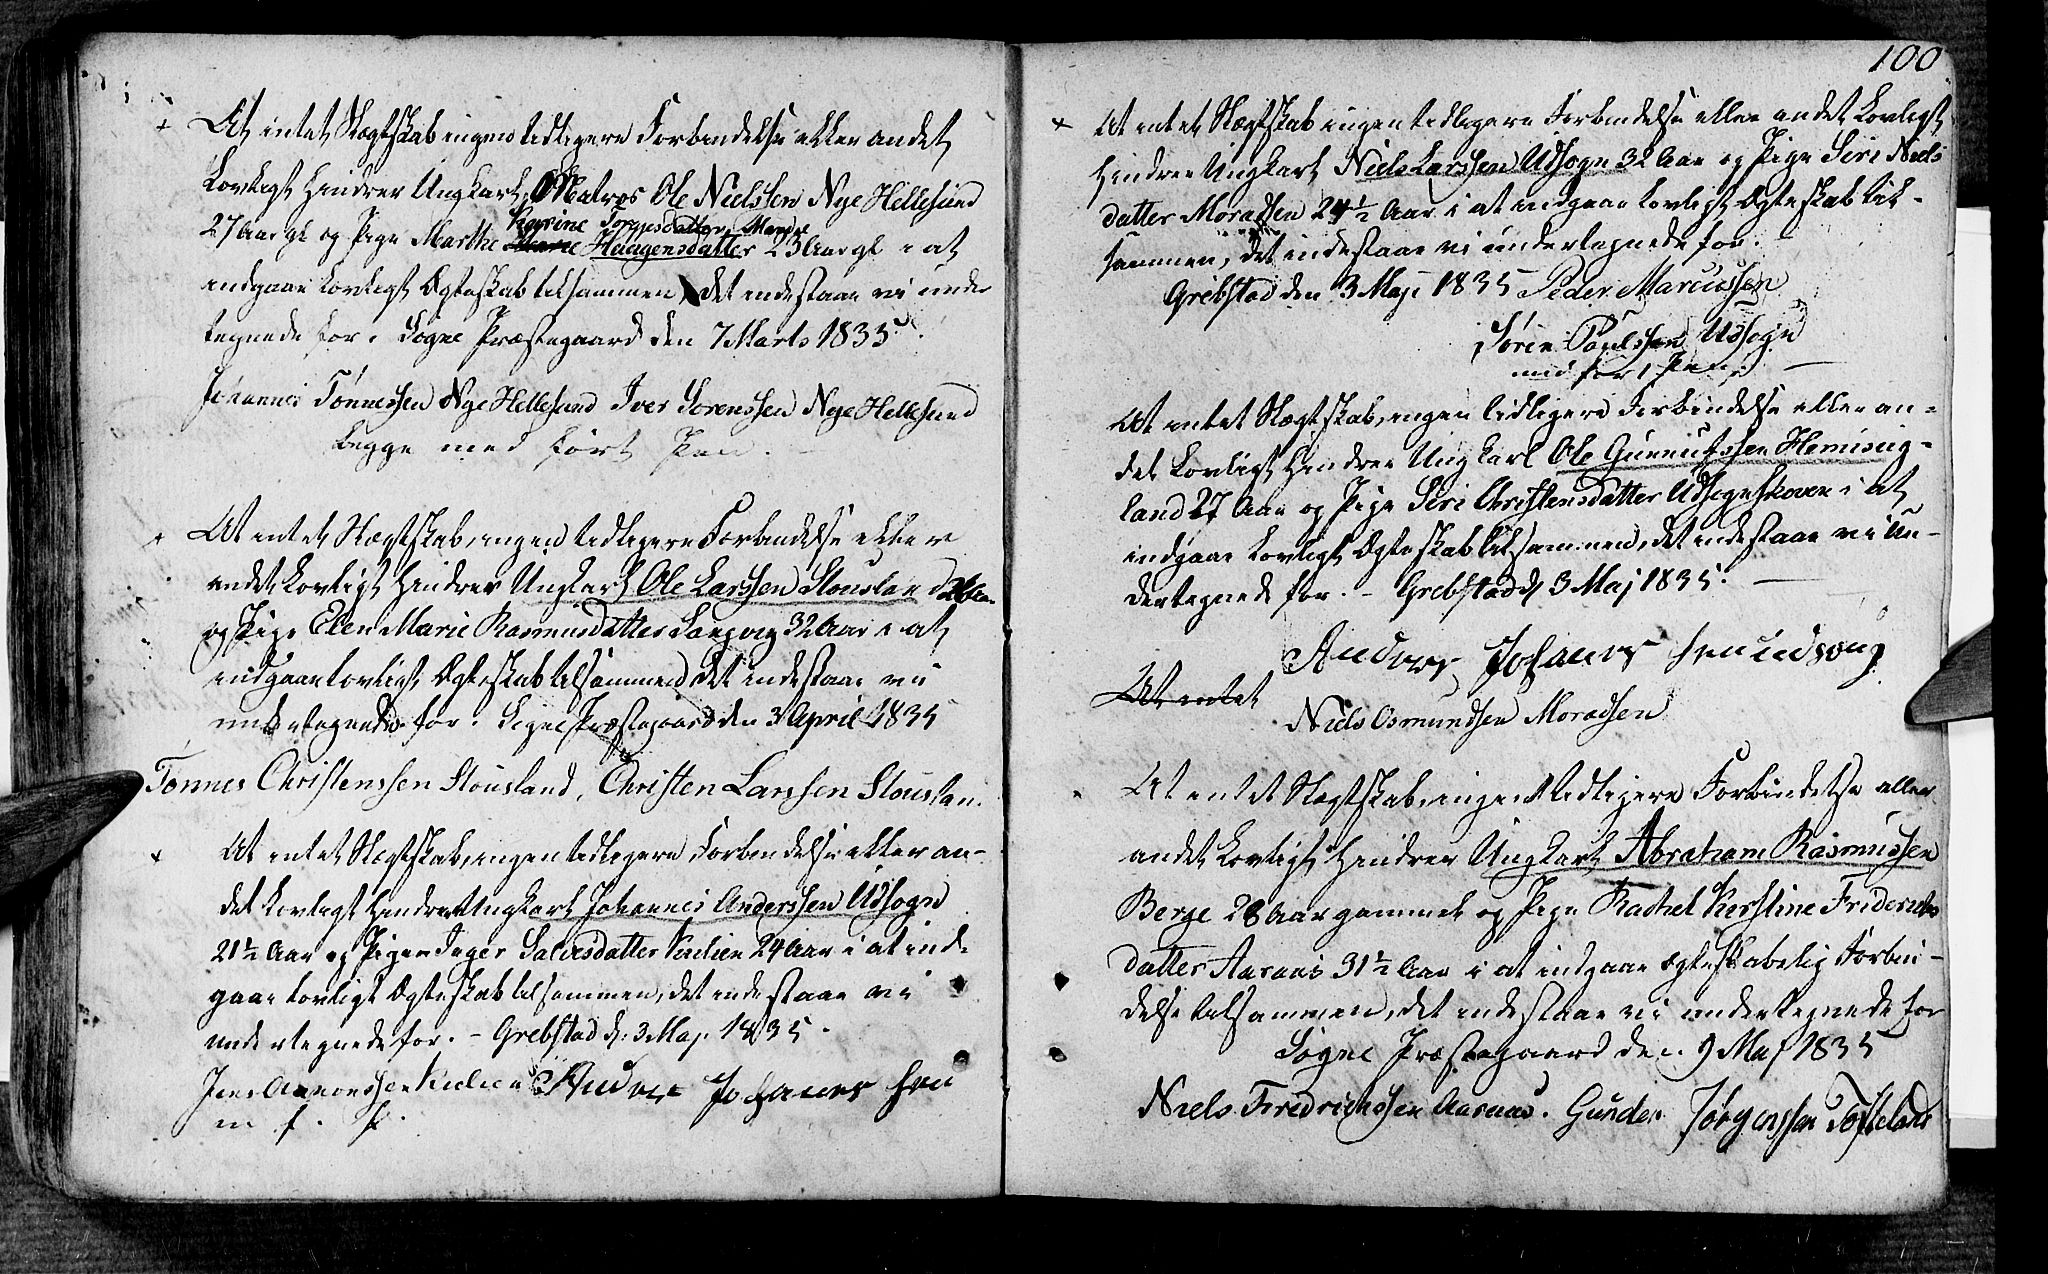 + At intet Slægtskab ingen tidligere Forbindelse eller andet
Lovligt hindrer Ungkarl, Matros Ole Nielssen Nye Hellesund
Karine Torgesdatter
27 Aar gl og Pige Marthe Haagensdatter 23 Aar gl i at
indgaae Lovligt Ægteskab tilsammen, det indestaae vi under
tegnede for. Sogne Præstegaard den 7 Marts 1835
Johannes Tønnessen Nye Hellesund Iver Sorenssen Nye Hellesund
begge med ført Pen.
At intet Slægtskab, ingen tidligere Forbindelse eller
andet Lovligt hindrer Ungkarl Ole Larssen Stousland
og Pige Elen Marie Rasmusdatter Langvag 32 Aar i at
indgaae Lovligt Ægteskab tilsammen det indestaae vi
undertegnede for. Sogne Præstegaard den 3 April 1835
Tønnes Christenssen Stousland, Christen Larssen Stouslan.
+ At intet Slægtskab, ingen tidligere Forbindelse eller an-
det Lovligt hindrer Ungkarl Johannes Anderssen Udsogn
21½ Aar og Pigen Inger Salvesdatter 24 Aar i at ind-
gaae Lovligt Ægteskab tilsammen, det indestaae vi
undertegnede for. - Grebstad d: 3 Maj 1835.
Jens Anders Johanes sen
m f. P.
100
+ At intet Slægtskab ingen tidligere Forbindelse eller andet Lovligt
hindrer Ungkarl Niels Larssen Udsogn 32 Aar og Pige Siri Niels
datter Moradsen 24½ Aar i at indgaae Lovligt Ægteskab til-
sammen, det indestaae vi undertegnede for.
Grebstad den 3 Maj 1835 Peder Marcussen
Søren Poulssen Udsogn
med ført Pen.
At intet Slægtskab, ingen tidligere Forbindelse eller an-
det Lovligt hindrer Ungkarl Ole Gunnufssen Hemisug-
land 27 Aar og Pige Siri Christensdatter Udsognskoven i at
indgaae Lovligt Ægteskab tilsammen, det indestaae vi Un-
dertegnede for. - Grebstad d 3 Maj 1835.
Anders Johanes sen udsong
At intet
Niels Osmundsen Moradsen
At intet Slægtskab, ingen tidligere Forbindelse eller
andet Lovligt hindrer Ungkarl Abraham Rasmussen
Berge 28 Aar gammel og Pige Rachel Kerstine Friderichs
datter Aaraas 31½ Aar i at indgaae Ægteskabelig Forbin-
delse tilsammen, det indestaae vi undertegnede for
Sogne Præstegaard den 9 Maj 1835
Niels Fredrichssen Aaraas. Gunder Jørgenssen Tofteland